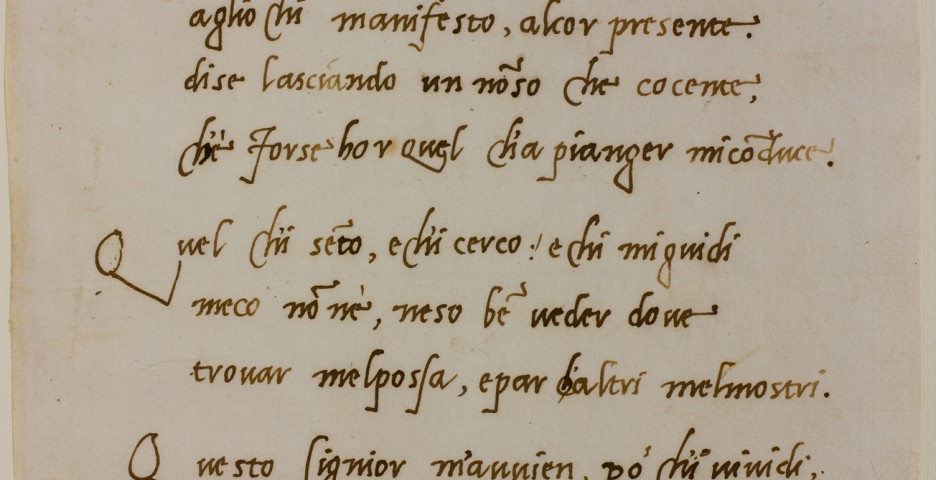 aglio chi manifesto, alcor presente.
dise lasciando un nõ so che cocente,
ch'è forse hor quel ch'a pianger mi cõduce.
Quel ch'i sẽto, e ch'i cerco: e chi mi guidi
meco nõ nè, ne so bẽ ueder doue
trouar mel possa, e par ch'altri mel mostri.
Questo signior m'auuien, po' ch'i uiuidi,